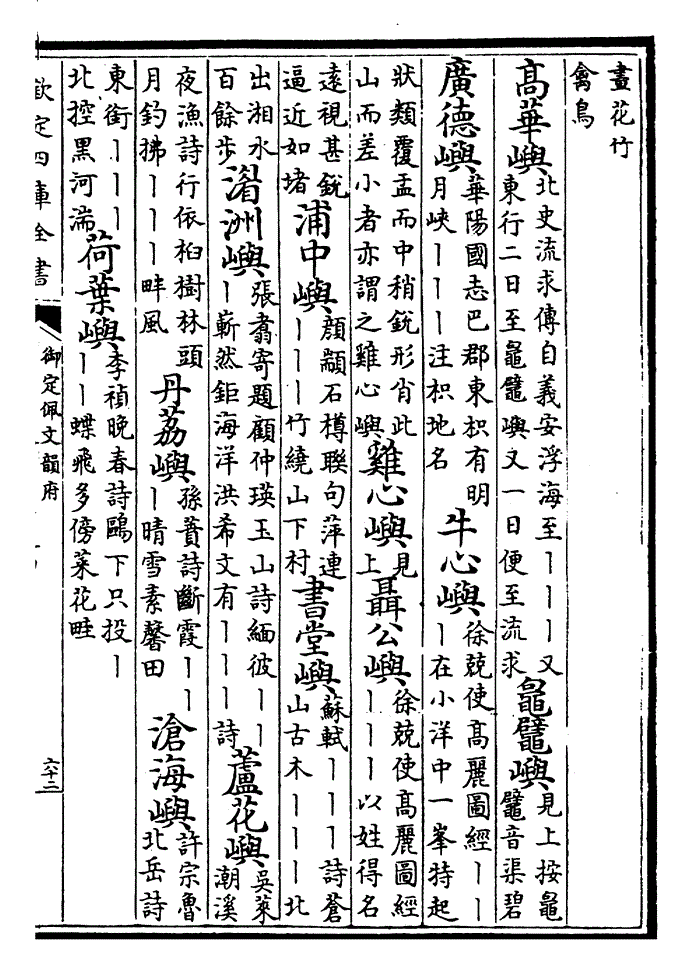 畫花竹
禽鳥
高華嶼北史流求傳自義安浮海至丨丨丨又
東行二日至鼊嶼又一日便至流求
鼊嶼見上按
鼊音渠碧
廣德嶼華陽國志巴郡東枳有明
月峽丨丨丨注枳地名
牛心嶼徐兢使高麗圖經丨丨
丨在小洋中一峯特起
狀類覆盂而中稍銳形肖此
山而差小者亦謂之雞心嶼
雞心嶼見
上
聶公嶼徐兢使高麗圖經
丨丨丨以姓得名
遠視甚銳
逼近如堵
浦中嶼顔顓石樽聯句萍連
丨丨丨竹繞山下村
書堂嶼蘇軾丨丨丨詩蒼
山古木丨丨丨北
出湘水
百餘步
渚洲嶼張翥寄題顧仲瑛玉山詩緬彼丨丨
丨嶄然鉅海洋洪希文有丨丨丨詩
蘆花嶼吳萊
潮溪
夜漁詩行依桕樹林頭
月釣拂丨丨丨畔風
丹荔嶼孫蕡詩斷霞丨丨
丨晴雪素馨田
滄海嶼許宗魯
北岳詩
東銜丨丨丨
北控黑河湍
荷葉嶼李禎晚春詩鷗下只投丨
丨丨蝶飛多傍菜花畦
欽定四庫全書
御定佩文韻府
六十二